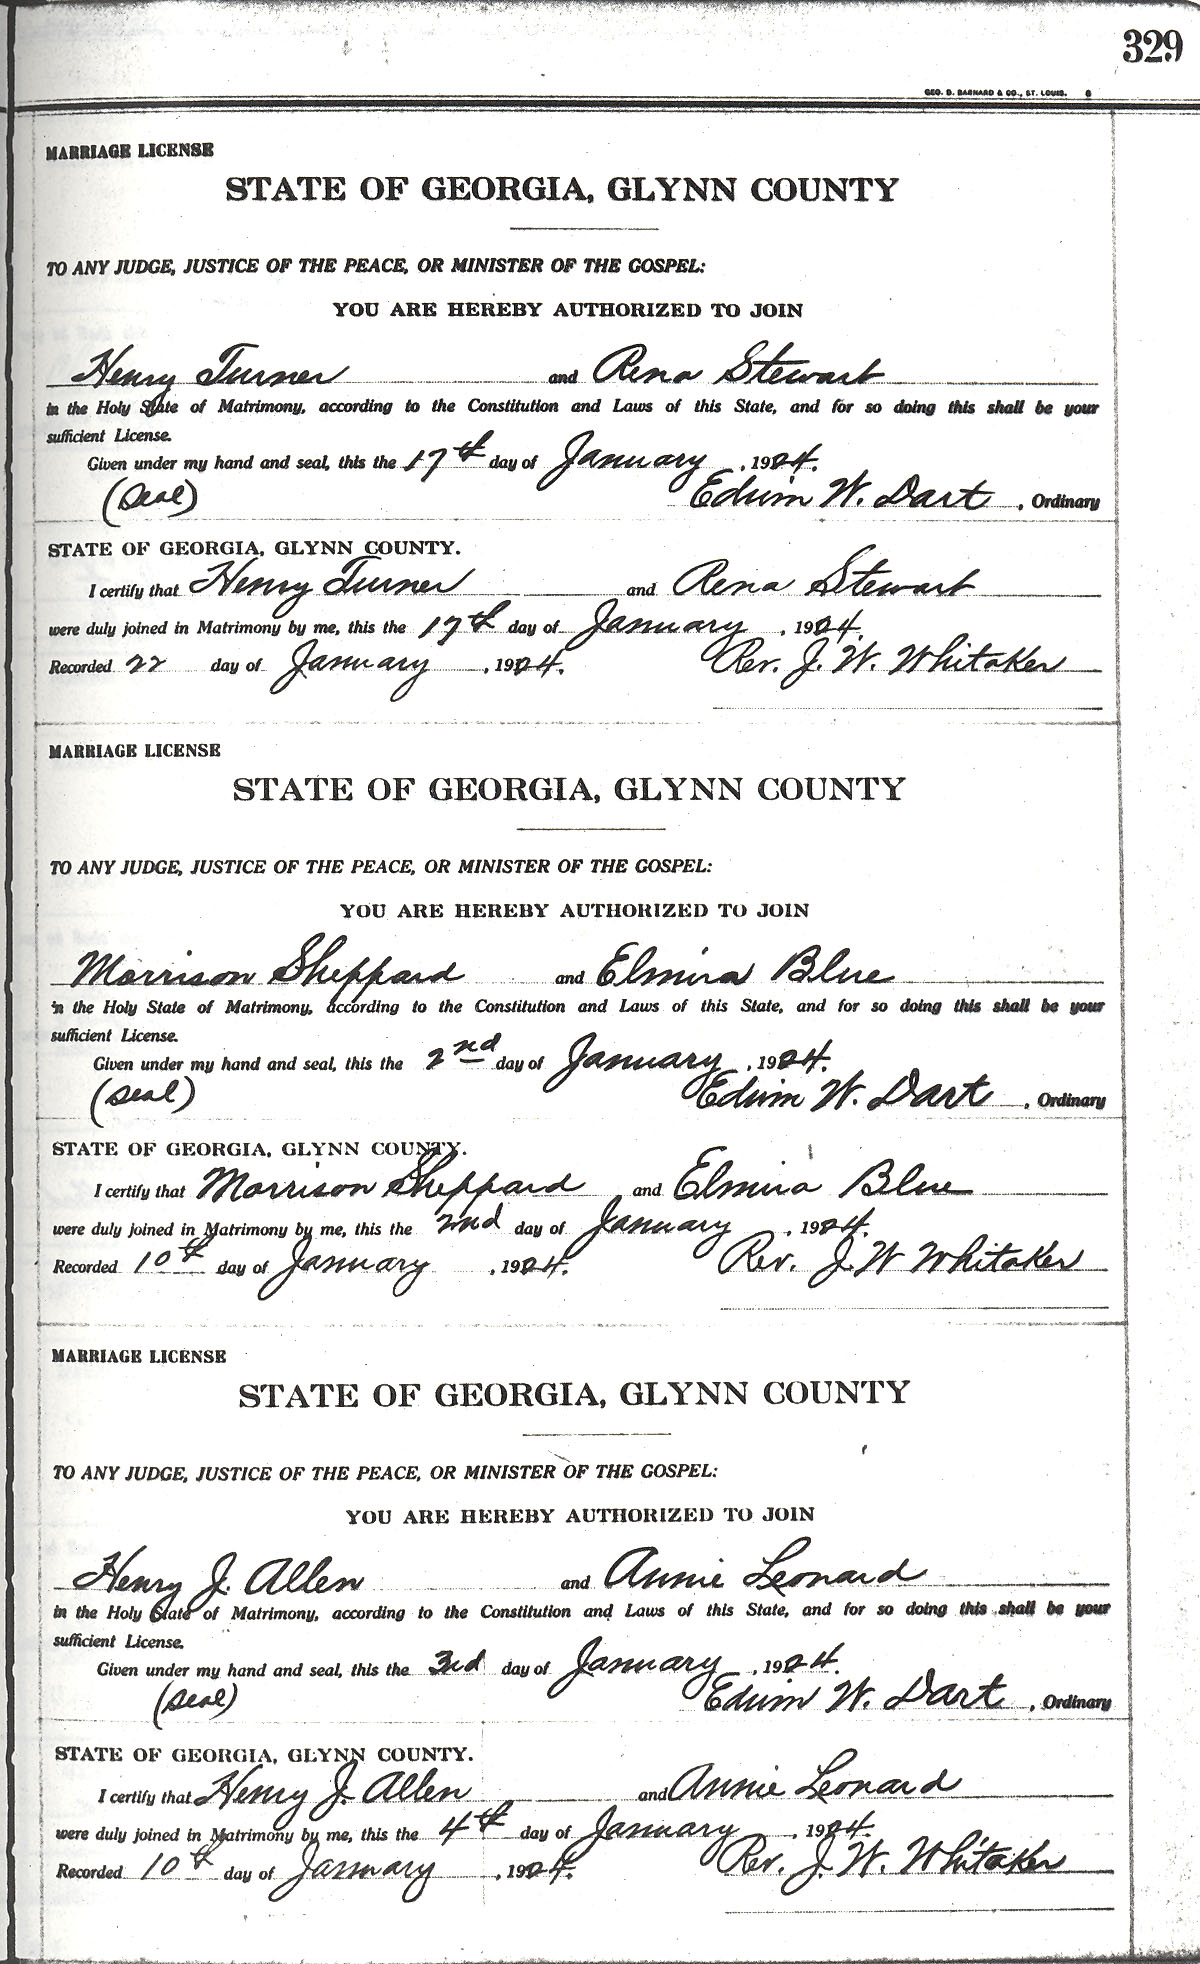 329
GEO. D. BARNARD & CO., ST. LOUIS. 6
MARRIAGE LICENSE
STATE OF GEORGIA, GLYNN COUNTY
TO ANY JUDGE, JUSTICE OF THE PEACE, OR MINISTER OF THE GOSPEL:
YOU ARE HEREBY AUTHORIZED TO JOIN
Henry Turner and Rena Stewart
in the Holy State of Matrimony, according to the Constitution and Laws of this State, and for so doing this shall be your
sufficient License.
Given under my hand and seal, this the 17th day of January, 1924.
(Seal) Edwin W. Dart, Ordinary
STATE OF GEORGIA, GLYNN COUNTY.
I certify that Henry Turner and Rena Stewart
were duly joined in Matrimony by me, this the 17th day of January, 1924.
Recorded 22 day of January, 1924. Rev. J. W. Whitaker
MARRIAGE LICENSE
STATE OF GEORGIA, GLYNN COUNTY
TO ANY JUDGE, JUSTICE OF THE PEACE, OR MINISTER OF THE GOSPEL:
YOU ARE HEREBY AUTHORIZED TO JOIN
Morrison Sheppard and Elmira Blue
in the Holy State of Matrimony, according to the Constitution and Laws of this State, and for so doing this shall be your
sufficient License.
Given under my hand and seal, this the 2nd day of January, 1924.
(Seal) Edwin W. Dart, Ordinary
STATE OF GEORGIA, GLYNN COUNTY.
I certify that Morrison Sheppard and Elmira Blue
were duly joined in Matrimony by me, this the 2nd day of January, 1924.
Recorded 10th day of January, 1924. Rev. J. W Whitaker
MARRIAGE LICENSE
STATE OF GEORGIA, GLYNN COUNTY
TO ANY JUDGE, JUSTICE OF THE PEACE, OR MINISTER OF THE GOSPEL:
YOU ARE HEREBY AUTHORIZED TO JOIN
Henry J. Allen and Annie Leonard
in the Holy State of Matrimony, according to the Constitution and Laws of this State, and for so doing this shall be your
sufficient License.
Given under my hand and seal, this the 3rd day of January, 1924.
(Seal) Edwin W. Dart, Ordinary
STATE OF GEORGIA, GLYNN COUNTY.
I certify that Henry J. Allen and Annie Leonard
were duly joined in Matrimony by me, this the 4th day of January, 1924.
Recorded 10th day of January, 1924. Rev. J. W. Whitaker